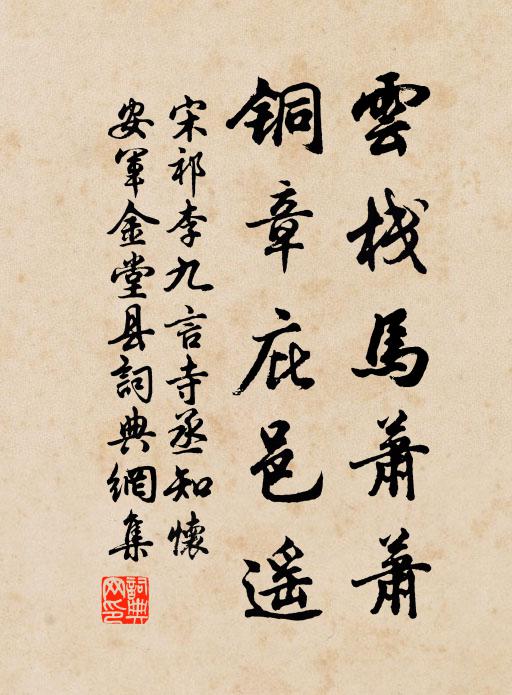 雲栈馬蕭蕭
銅章庇邑遥
宋祁李九言寺丞知懷
安軍金堂县詞典網集
詞典网印